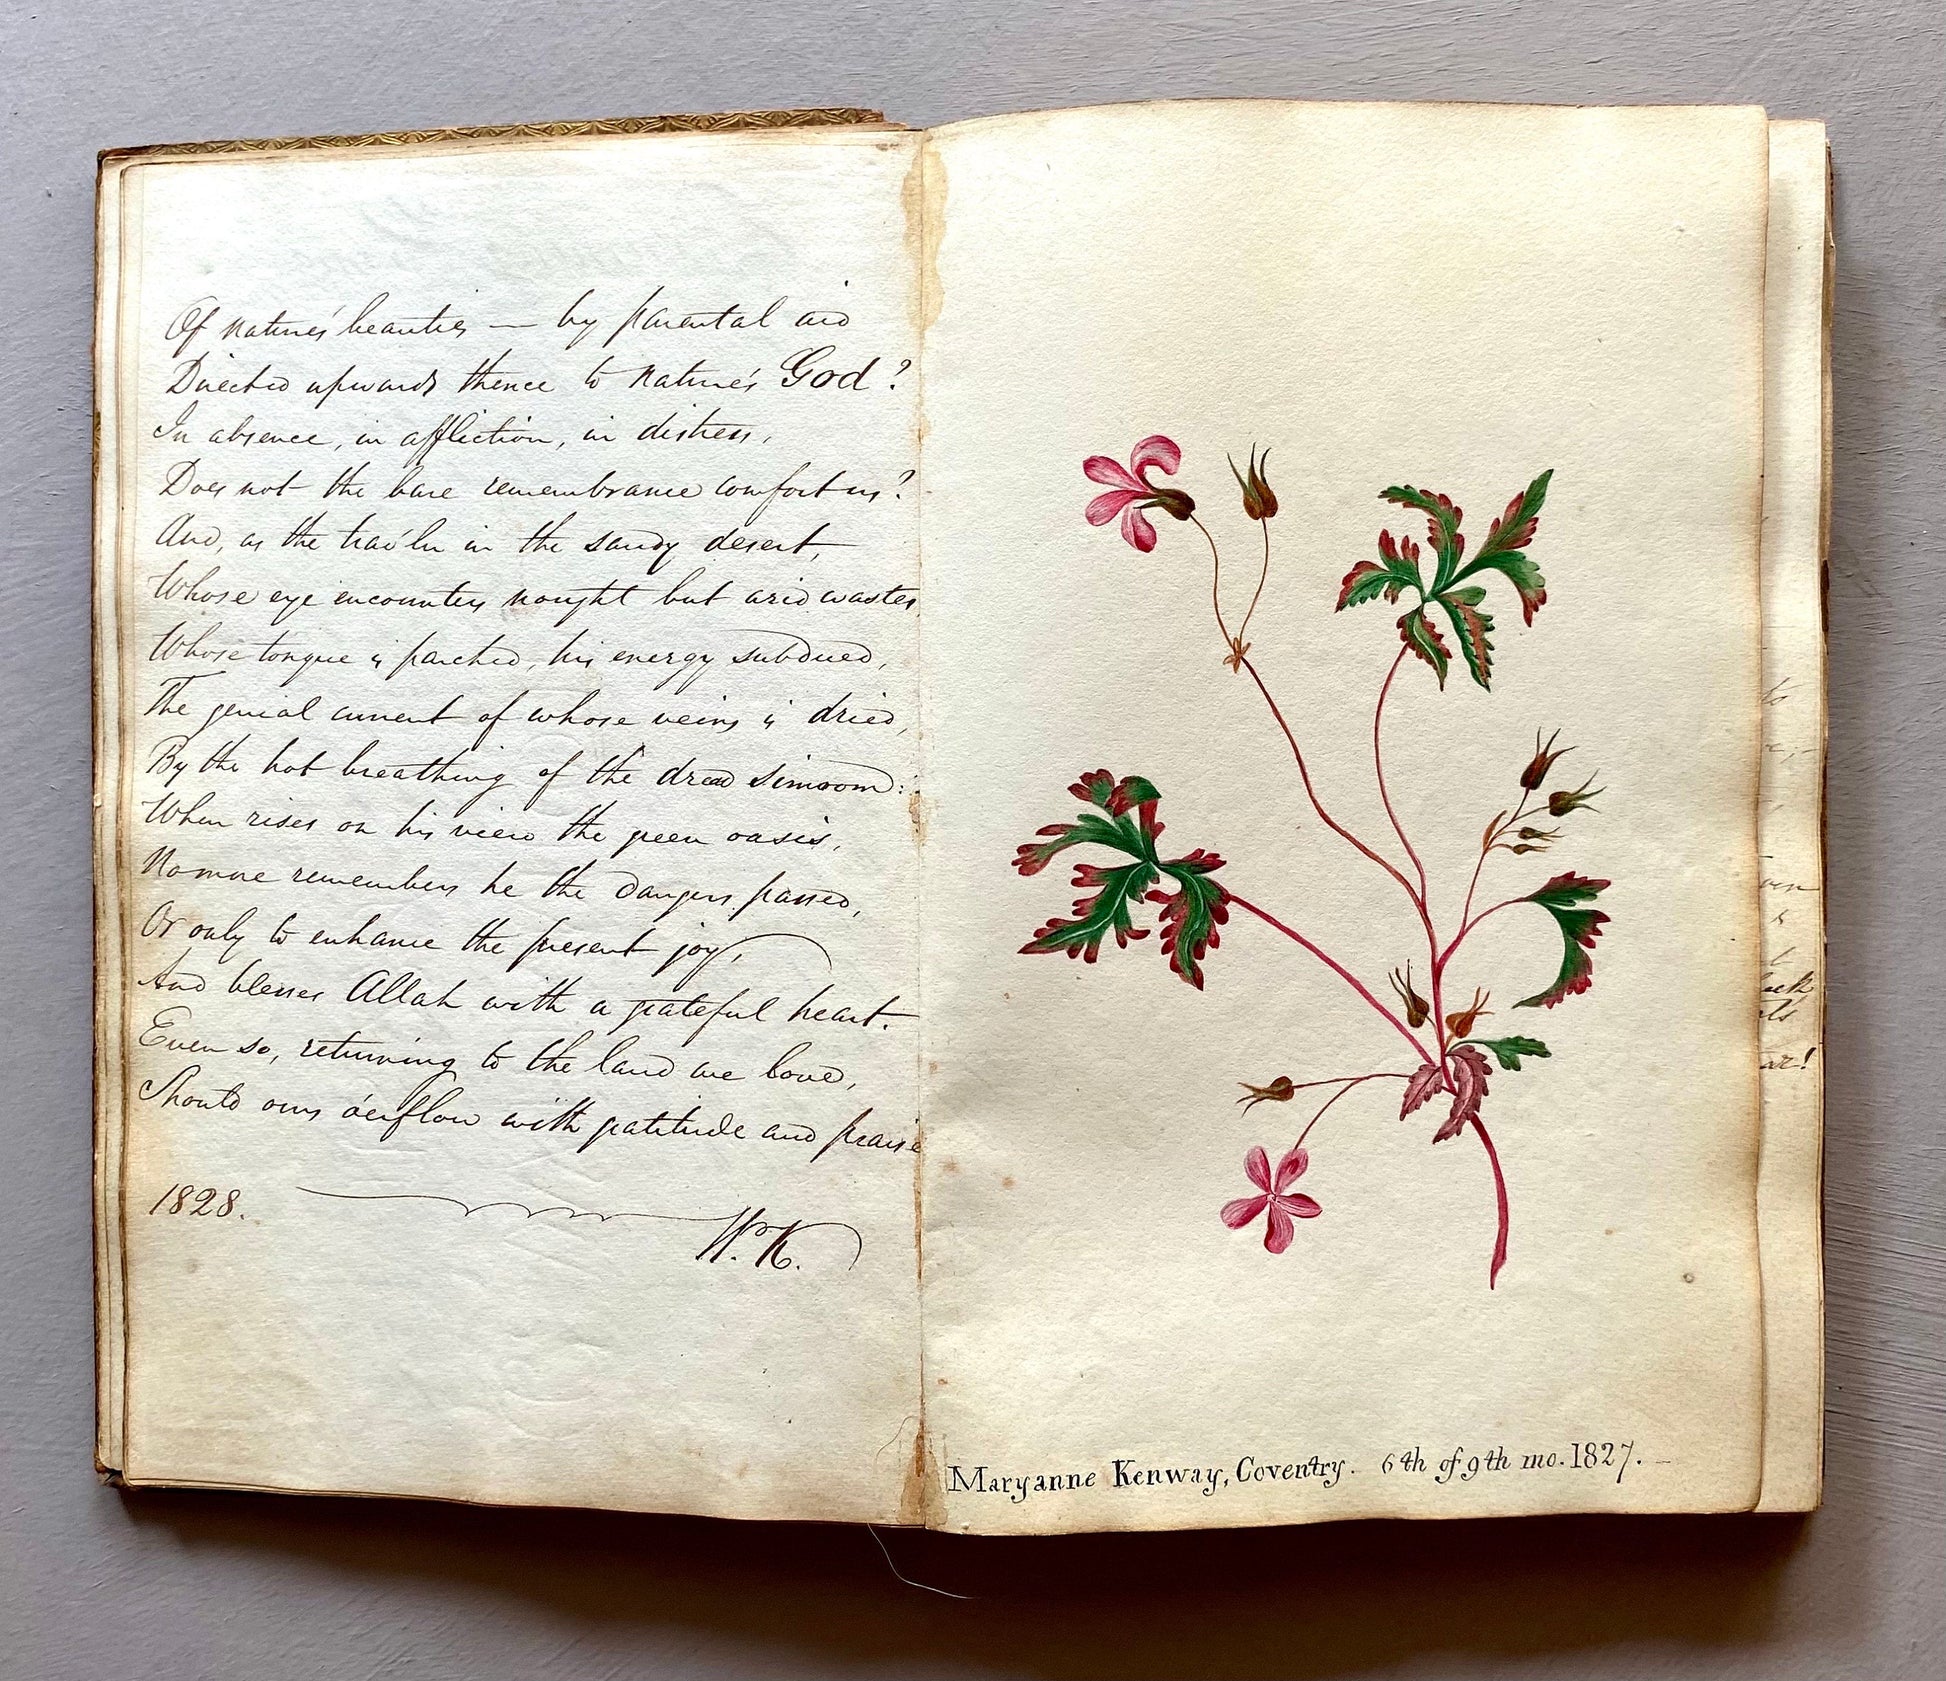 Of nature's beauties — by parental aid
Directed upwards thence to nature's God?
In absence, in affliction, in distress,
Does not the bare remembrance comfort us?
And, as the trav'ler in the sandy desert,
Whose eye encounters nought but arid wastes,
Whose tongue is parched, his energy subdued,
The genial current of whose veins is dried,
By the hot breathing of the dread simoom:
When rises on his view the green oasis,
No more remembers he the dangers passed,
Or only to enhance the present joy,
And blesses Allah with a grateful heart.
Even so, returning to the land we love,
Should ours o'erflow with gratitude and praise
1828.
W. K.
Maryanne Kenway, Coventry. 6th of 9th mo. 1827. —